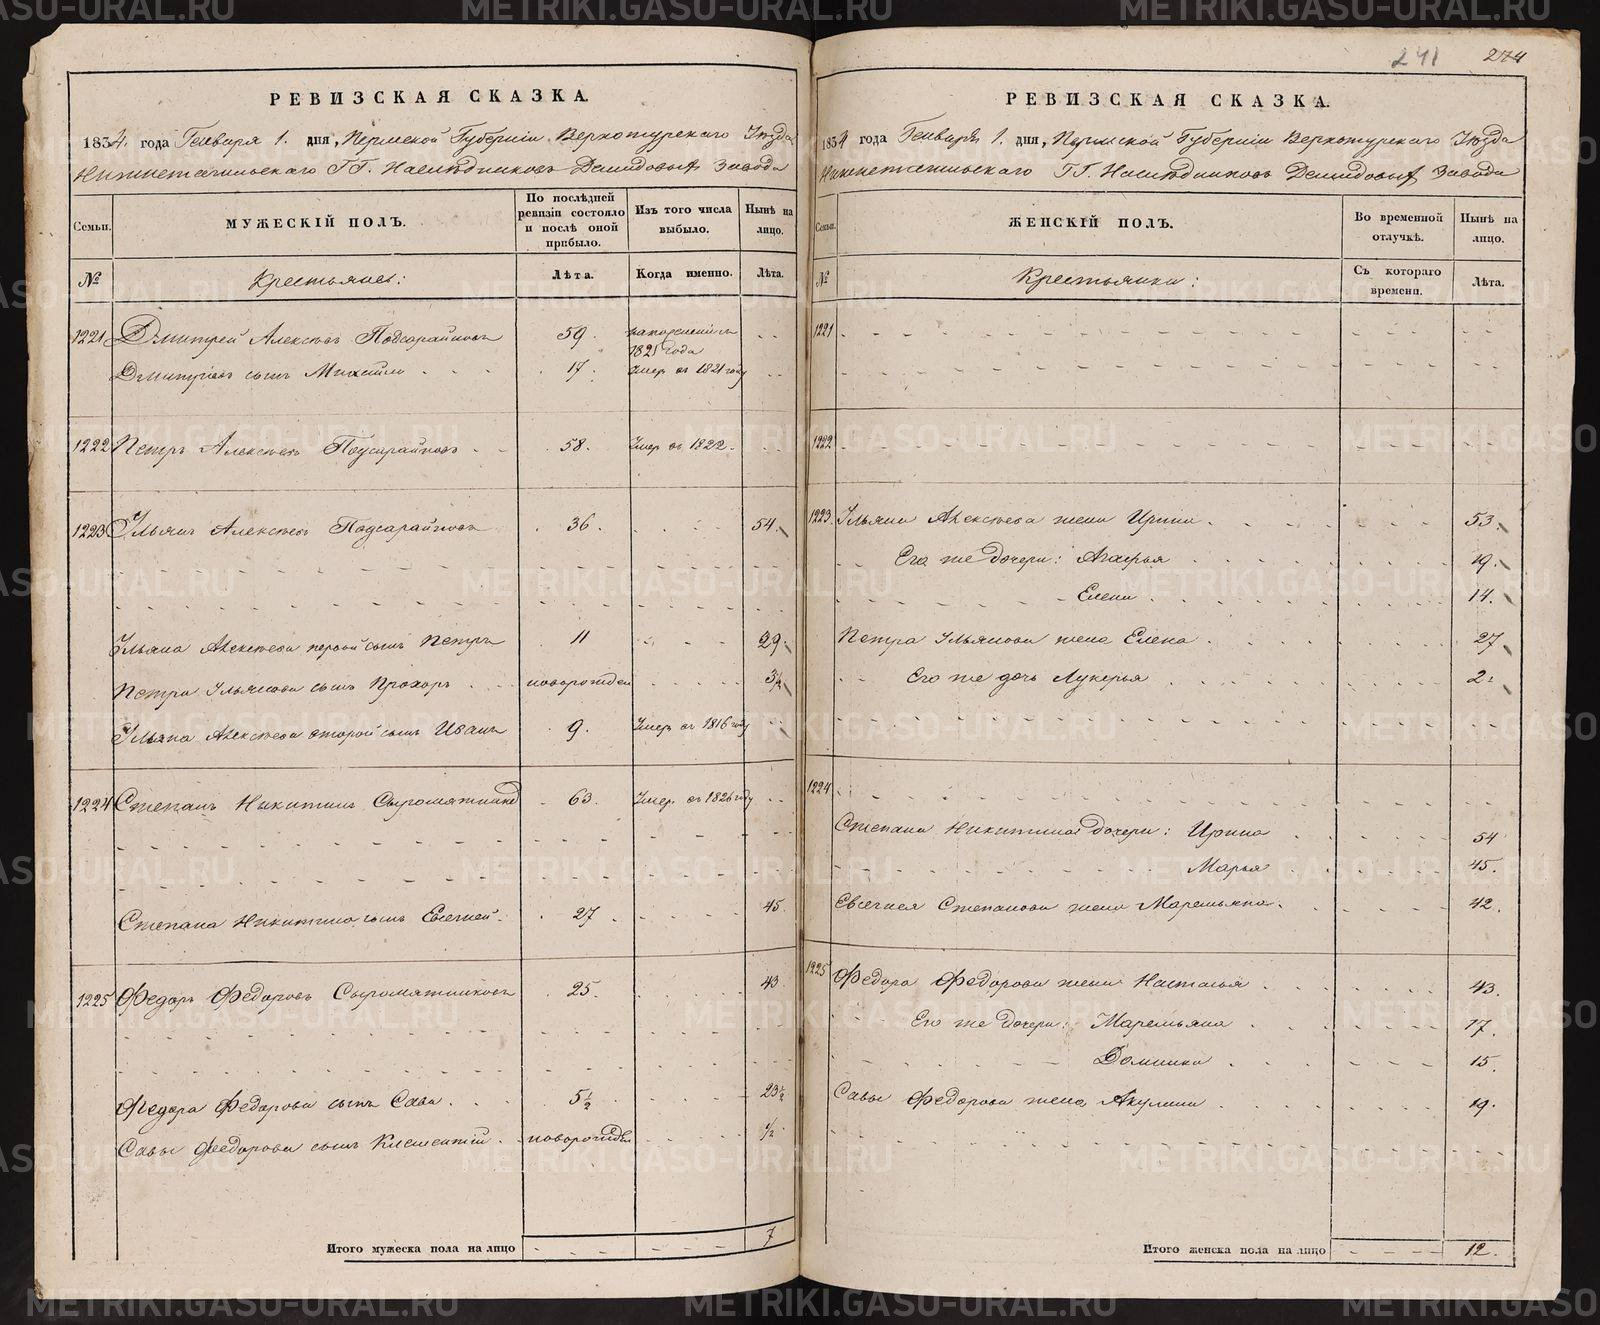 РЕВИЗСКАЯ СКАЗКА.
1834 года Генваря 1. дня, Пермской Губерніи Верхотурскаго Уѣзда
Нижнетагильскаго ГГ. Наслѣдниковъ Демидовыхъ Завода
Семьи.
МУЖЕСКІЙ ПОЛЪ.
По послѣдней
ревизіи состояло
и послѣ оной
прибыло.
Изъ того числа
выбыло.
Нынѣ на
лицо.
№
Крестьянъ:
Лѣта.
Когда именно.
Лѣта.
1221 Дмитрей Алексѣевъ Подсарайновъ 59.
1821 года
Дмитріевъ сынъ Михайло 17. Умер. въ 1821 году
1222 Петръ Алексѣевъ Подсарайновъ 58. Умер. въ 1822.
1223 Ульянъ Алексѣевъ Подсарайновъ 36. 54.
Ульяна Алексѣева первой сынъ Петръ 11 29.
Петра Ульянова сынъ Прохоръ новорожден 3½
Ульяна Алексѣева второй сынъ Иванъ 9. Умеръ въ 1816 году
1224 Степанъ Никитинъ Сыромятников 63. Умер. въ 1826 году
Степана Никитина сынъ Евсегней 27. 45
1225 Федоръ Федоровъ Сыромятниковъ 25. 43
Федора Федорова сынъ Сава 5½ 23½
Савы Федорова сынъ Клементій новорожден ½
Итого мужеска пола на лицо 7
241 274
РЕВИЗСКАЯ СКАЗКА.
1834 года Генваря 1. дня, Пермской Губерніи Верхотурскаго Уѣзда
Нижнетагильскаго ГГ. Наслѣдниковъ Демидовыхъ Завода
Семьи.
ЖЕНСКІЙ ПОЛЪ.
Во временной
отлучкѣ.
Нынѣ на
лицо.
№
Крестьянки:
Съ котораго
времени.
Лѣта.
1221
1222
1223 Ульяна Алексѣева жена Ирина 53.
Его же дочери: Агафья 19.
Елена 14.
Петра Ульянова жена Елена 27.
Его же дочь Лукерья 2.
1224
Степана Никитина дочери: Ирина 54
Марья 45.
Евсегнея Степанова жена Маремьяна 42.
1225 Федора Федорова жена Настасья 43.
Его же дочери: Маремьяна 17.
Домника 15.
Савы Федорова жена Акулина 19.
Итого женска пола на лицо 12.
METRIKI.GASO-URAL.RU